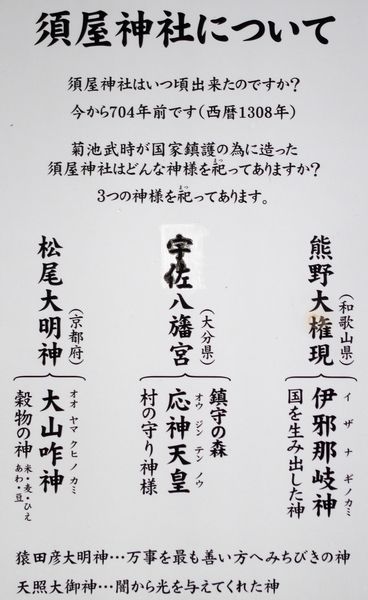 須屋神社について
須屋神社はいつ頃出来たのですか?
今から704年前です(西暦1308年)
菊池武時が国家鎮護の為に造った
須屋神社はどんな神様を祀ってありますか?
まつ
3つの神様を祀ってあります。
まつ
熊野大権現
(和歌山県)
伊邪那岐神
イザナギノカミ
国を生み出した神
宇佐八旛宮
(大分県)
鎮守の森
応神天皇
オウジンテンノウ
村の守り神様
松尾大明神
(京都府)
大山咋神
オオヤマクヒノカミ
穀物の神
米・麦・ひえ
あわ・豆
猿田彦大明神…万事を最も善い方へみちびきの神
天照大御神…闇から光を与えてくれた神